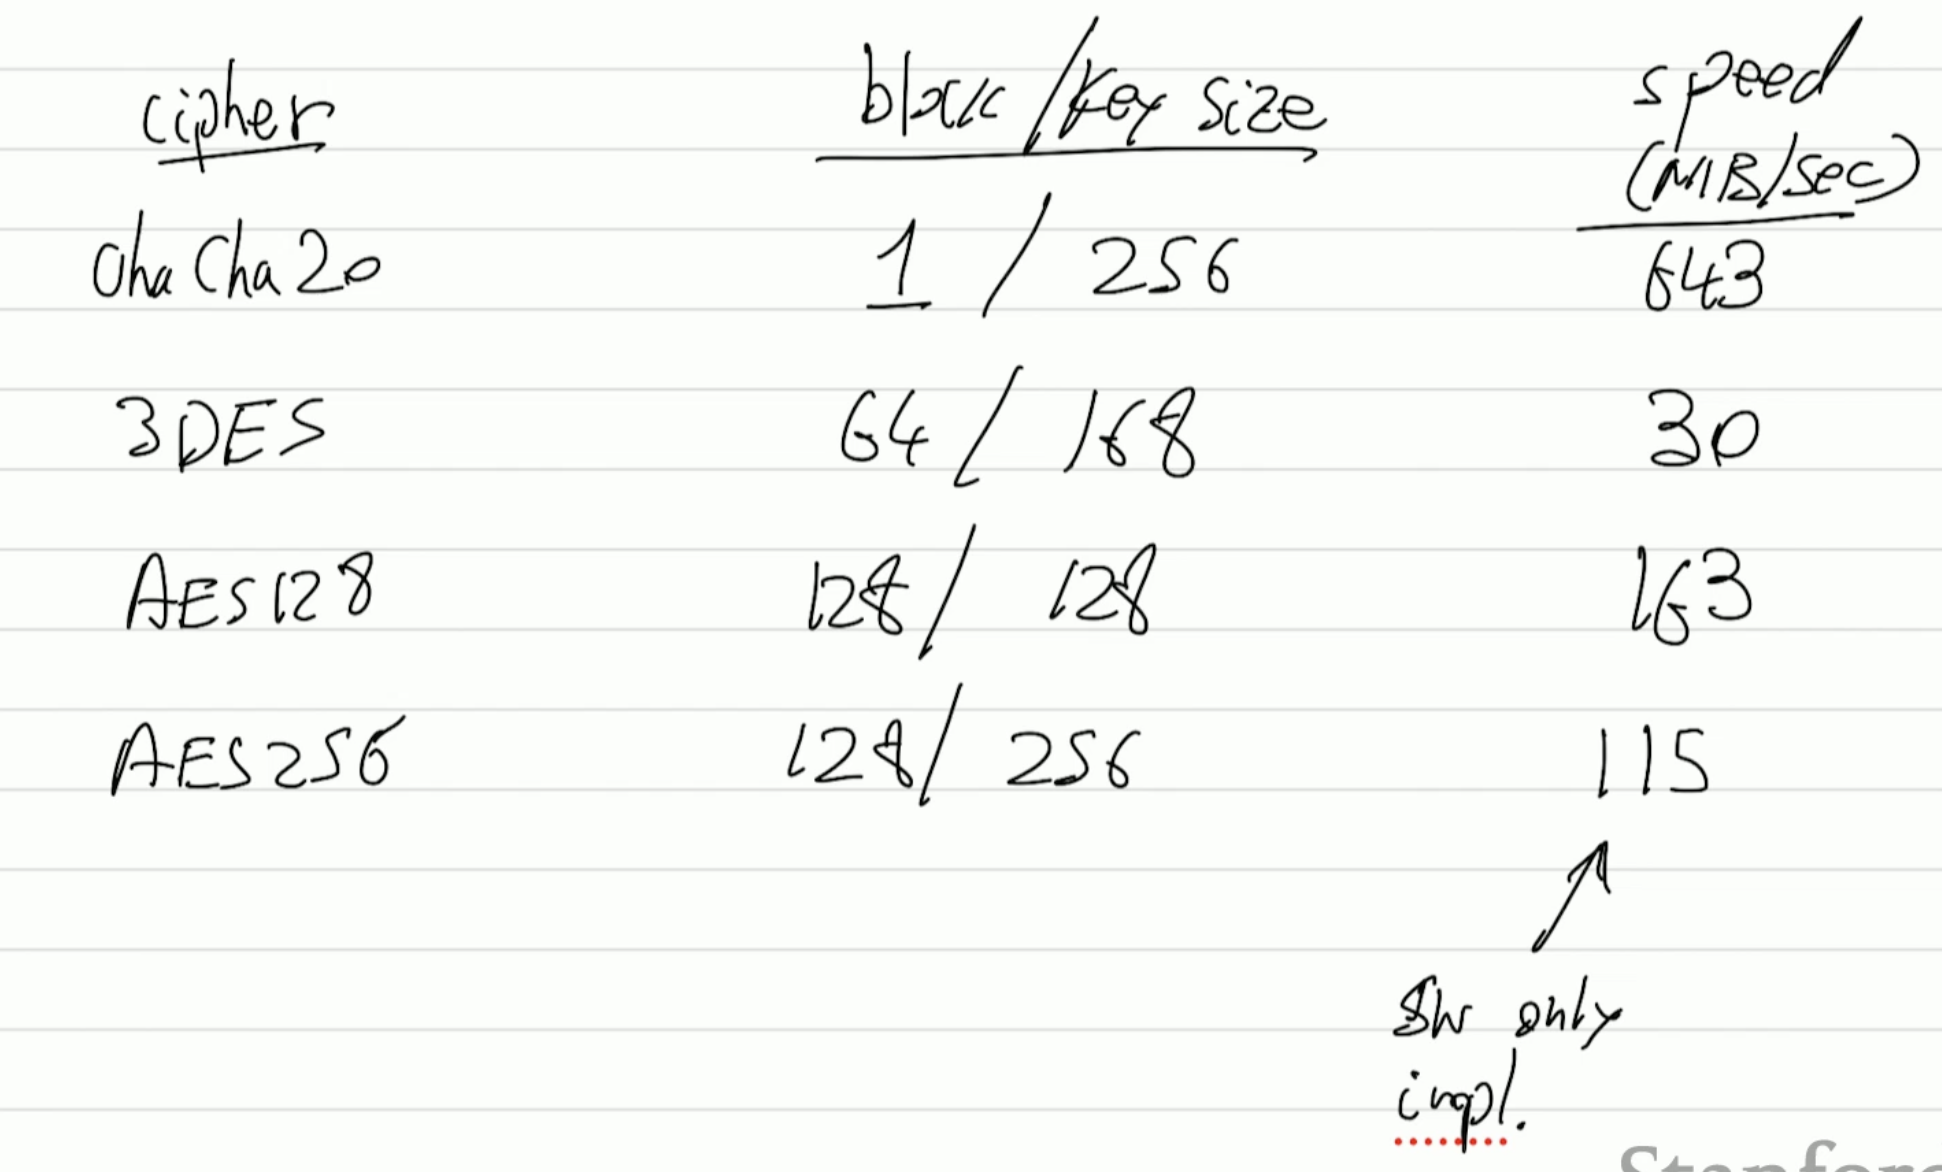 cipher block/key size speed
(MB/sec)
ChaCha20 1 / 256 643
3DES 64 / 168 30
AES128 128 / 128 163
AES256 128 / 256 115
SW only
impl.